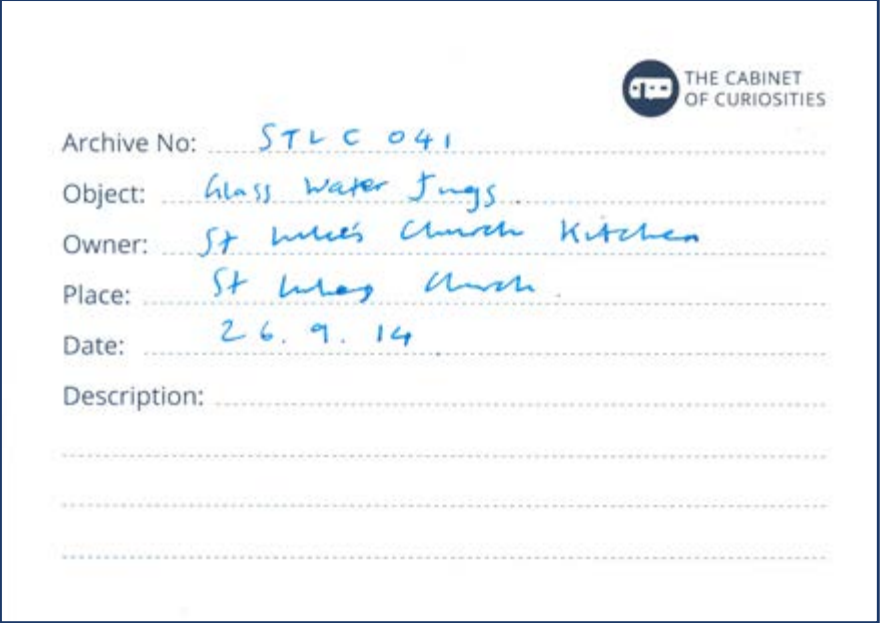 THE CABINET
OF CURIOSITIES
Archive No: STLC 041
Object: Glass Water Jugs.
Owner: St Luke's Church Kitchen
Place: St Lukes Church.
Date: 26.9.14
Description: